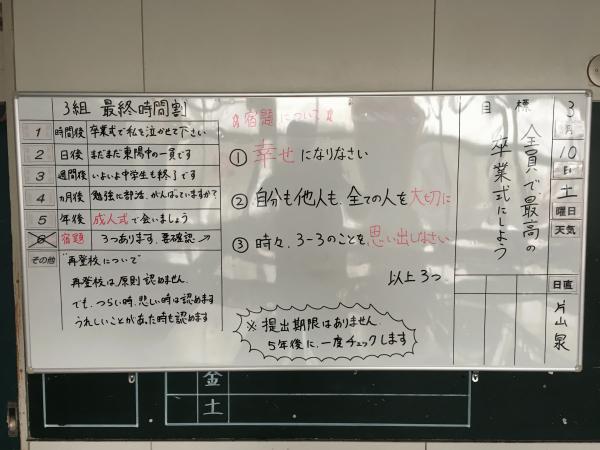 3組 最終時間割
1 時間後 卒業式で私を泣かせて下さい
2 日後 まだまだ東陽中の一員です
3 週間後 いよいよ中学生も終了です
4 ヵ月後 勉強に部活、がんばっていますか?
5 年後 成人式で会いましょう
6 宿題 3つあります。要確認→
その他 "再登校について"
再登校は、原則認めません。
でも、つらい時、悲しい時は認めます
うれしいことがあった時も認めます
宿題について
① 幸せになりなさい
② 自分も他人も、全ての人を大切に
③ 時々、3-3のことを思い出しなさい
以上3つ
※ 提出期限はありません。
5年後に、一度チェックします
目標
全員で最高の
卒業式にしよう
3月10日土曜日
天気
日直
片山
泉
金
土